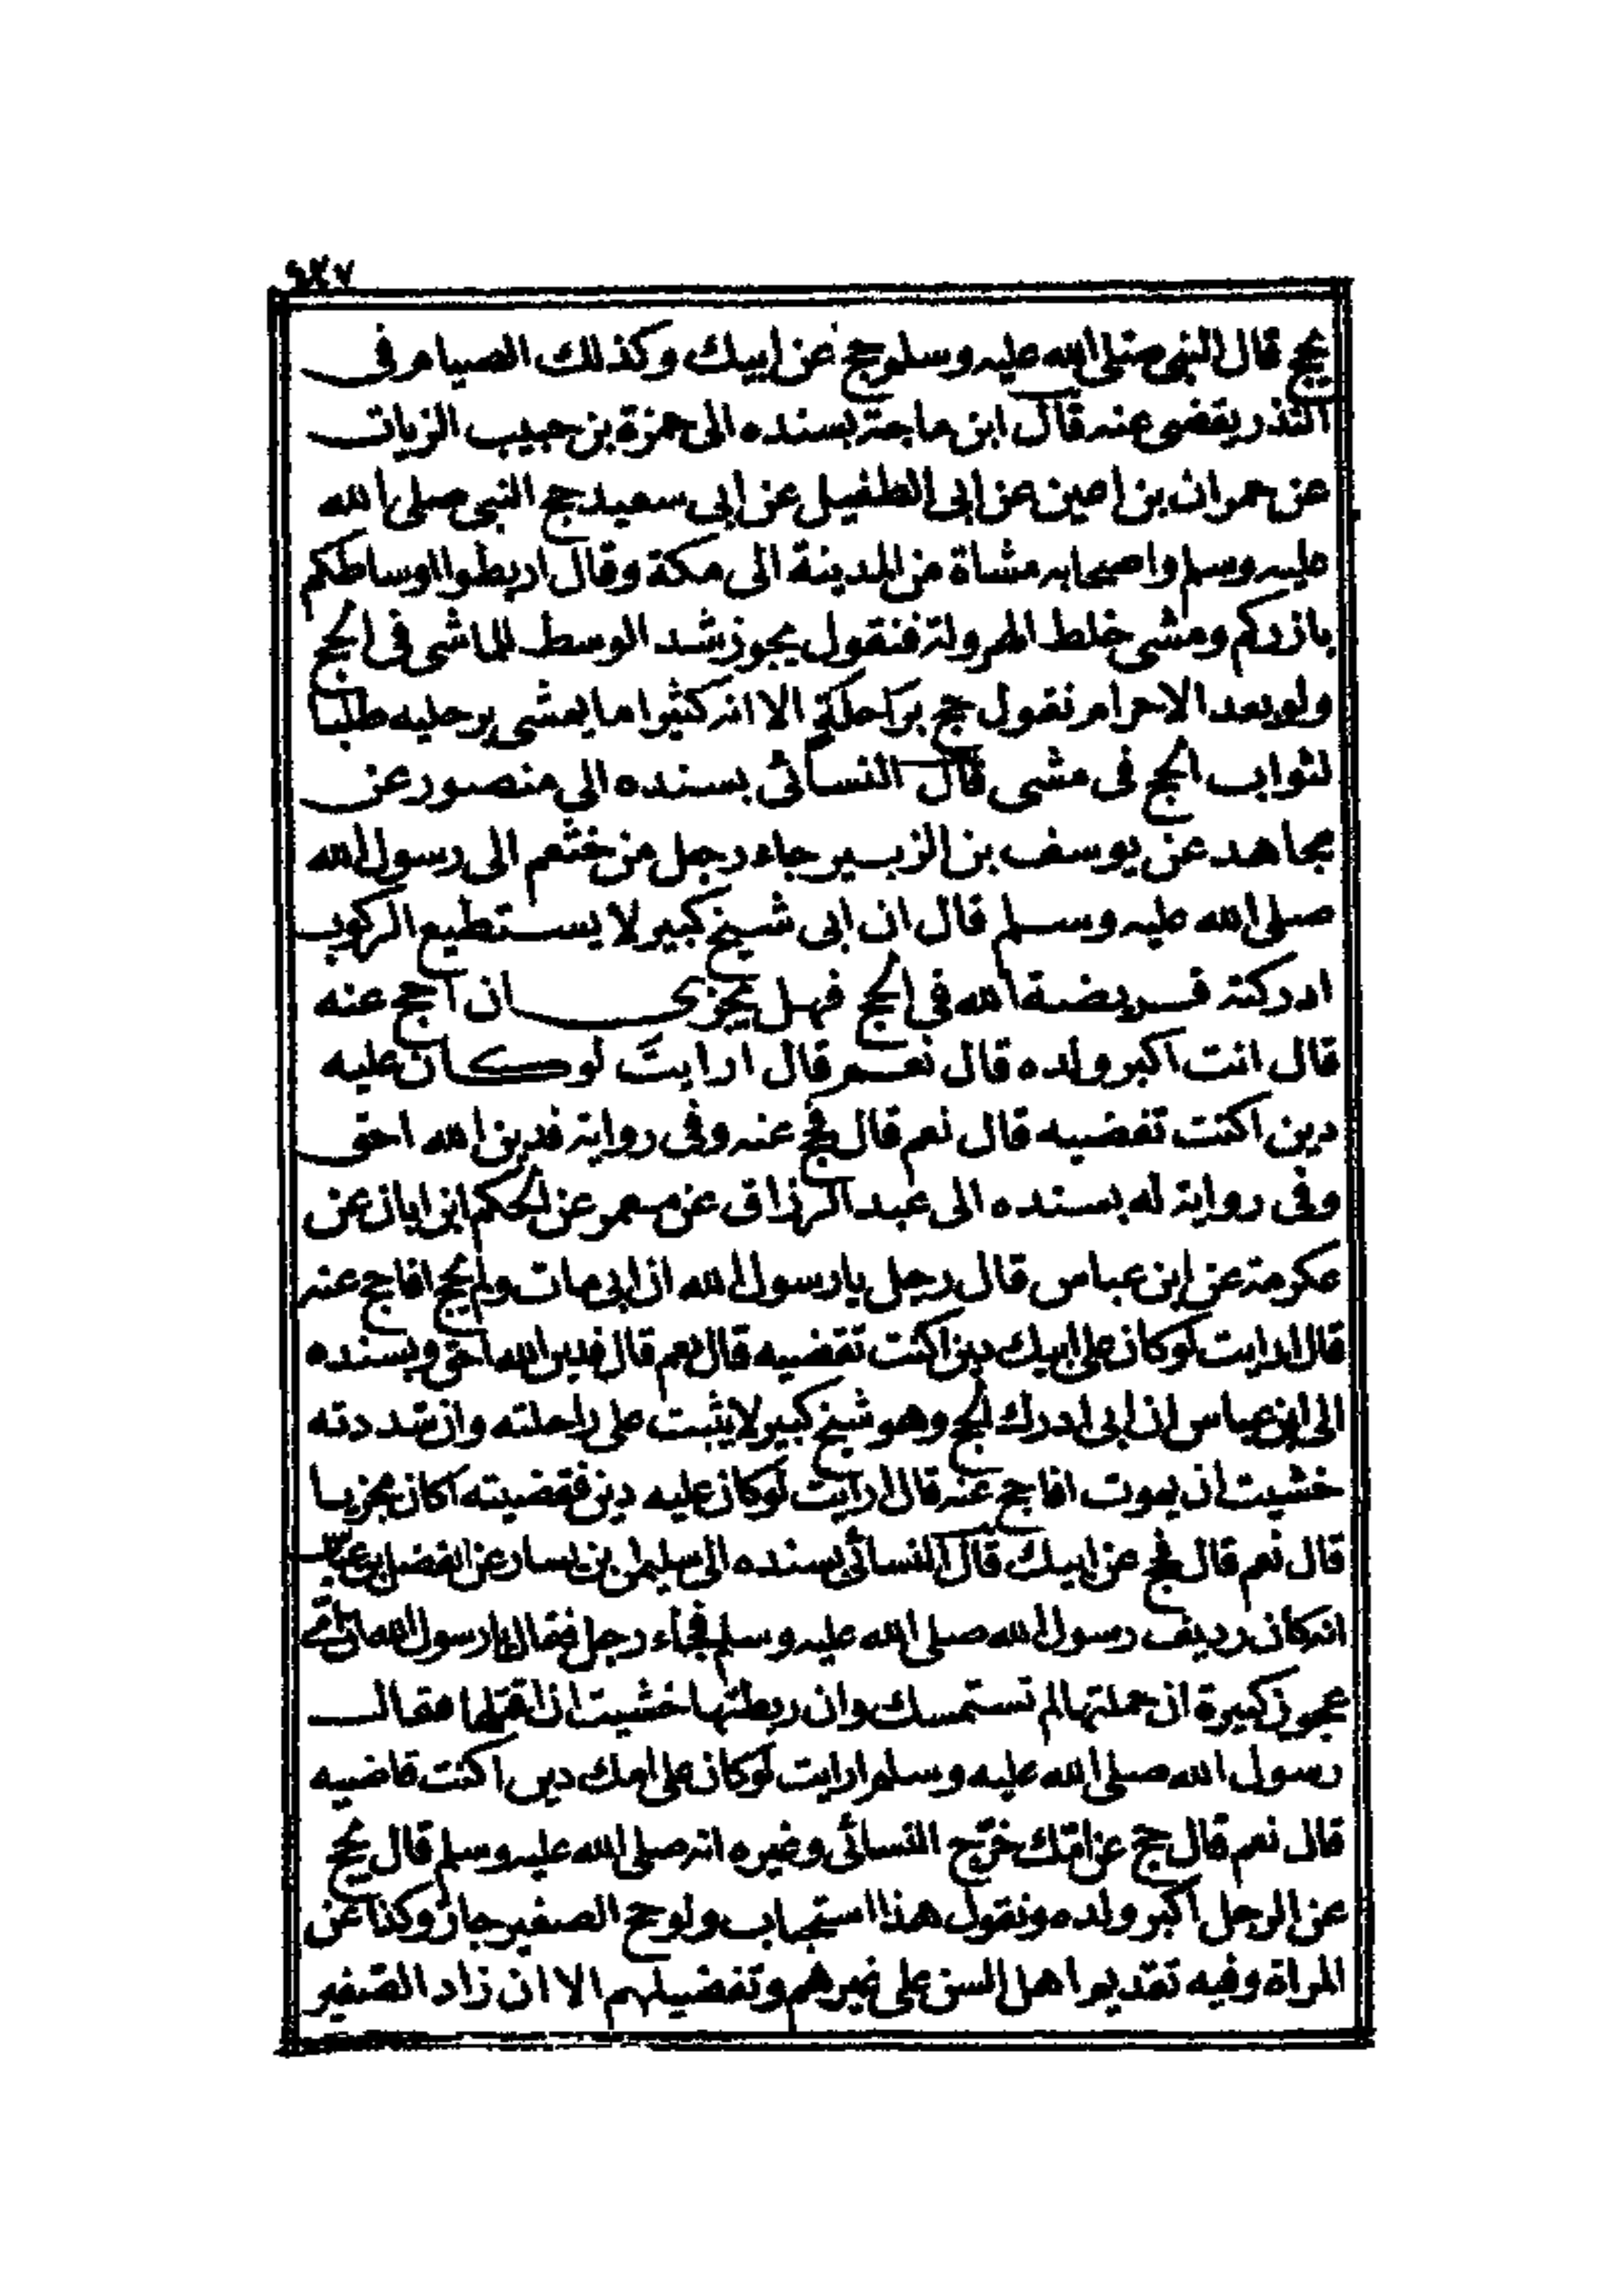 يحج قال النبى صلى الله عليه وسلم حج عن ابيك وكذلك الصيام فى
النذر يقضى عنه قال ابن ماجة بسنده الى حمزة بن حبيب الزيات
عن حمران بن اعين عن ابى الطفيل عن ابى سعيد حج النبى صلى الله
عليه وسلم واصحابه مشاة من المدينة الى مكة وقال اربطوا اوساطكم
بازركم ومشى خلط الهرولة فنقول يجوز شد الوسط للماشى فى الحج
ولو بعد الاحرام نقول حج براحلة الا انه كثيرا ما يمشى برجليه طلبا
لثواب الحج فى مشى قال النسائى بسنده الى منصور عن
مجاهد عن يوسف بن الزبير جاء رجل من خثعم الى رسول الله
صلى الله عليه وسلم قال ان ابى شيخ كبير لا يستطيع الركوب
ادركته فريضة الله فى الحج فهل يجزى ان احج عنه
قال انت اكبر ولده قال نعم قال ارايت لو كان عليه
دين اكنت تقضيه قال نعم قال فحج عنه وفى رواية فدين الله احق
وفى رواية له بسنده الى عبد الرزاق عن معمر عن الحكم ابن ابان عن
عكرمة عن ابن عباس قال رجل يا رسول الله ان ابى مات ولم يحج افاحج عنه
قال ارايت لو كان على ابيك دين اكنت تقضيه قال نعم قال فدين الله احق وبسنده
الى ابن عباس ان ابى ادرك الحج وهو شيخ كبير لا يثبت على راحلته وان شددته
خشيت ان يموت افاحج عنه قال ارايت لو كان عليه دين فقضيته اكان مجزيا
قال نعم قال فحج عن ابيك قال النسائى بسنده الى سليمن بن يسار عن الفضل بن عباس
انه كان رديف رسول الله صلى الله عليه وسلم فجاء رجل فقال يا رسول الله ان امى
عجوز كبيرة ان حملتها لم تستمسك وان ربطتها خشيت ان اقتلها فقال
رسول الله صلى الله عليه وسلم ارايت لو كان على امك دين اكنت قاضيه
قال نعم قال حج عن امّك خرّج النسائى وغيره انه صلى الله عليه وسلم قال يحج
عن الرجل اكبر ولده ونقول هذا استحباب ولو حج الصغير جاز وكذا عن
المراة وفيه تقديم اهل السن على غيرهم وتفضيلهم الا ان زاد الصّغير